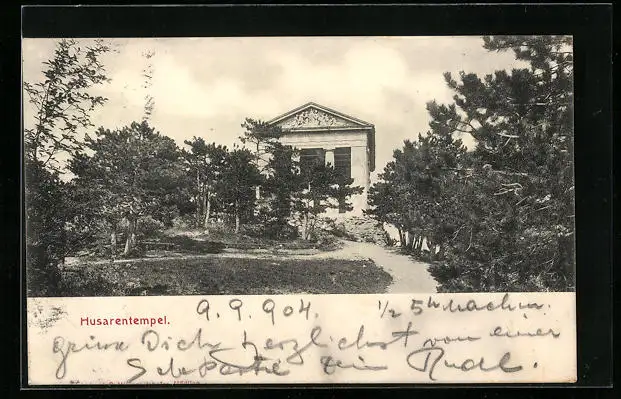 Husarentempel.
9.9.904. 1/2 5h Nachm.
grüsse Dich herzlichst von einer
Rudl.